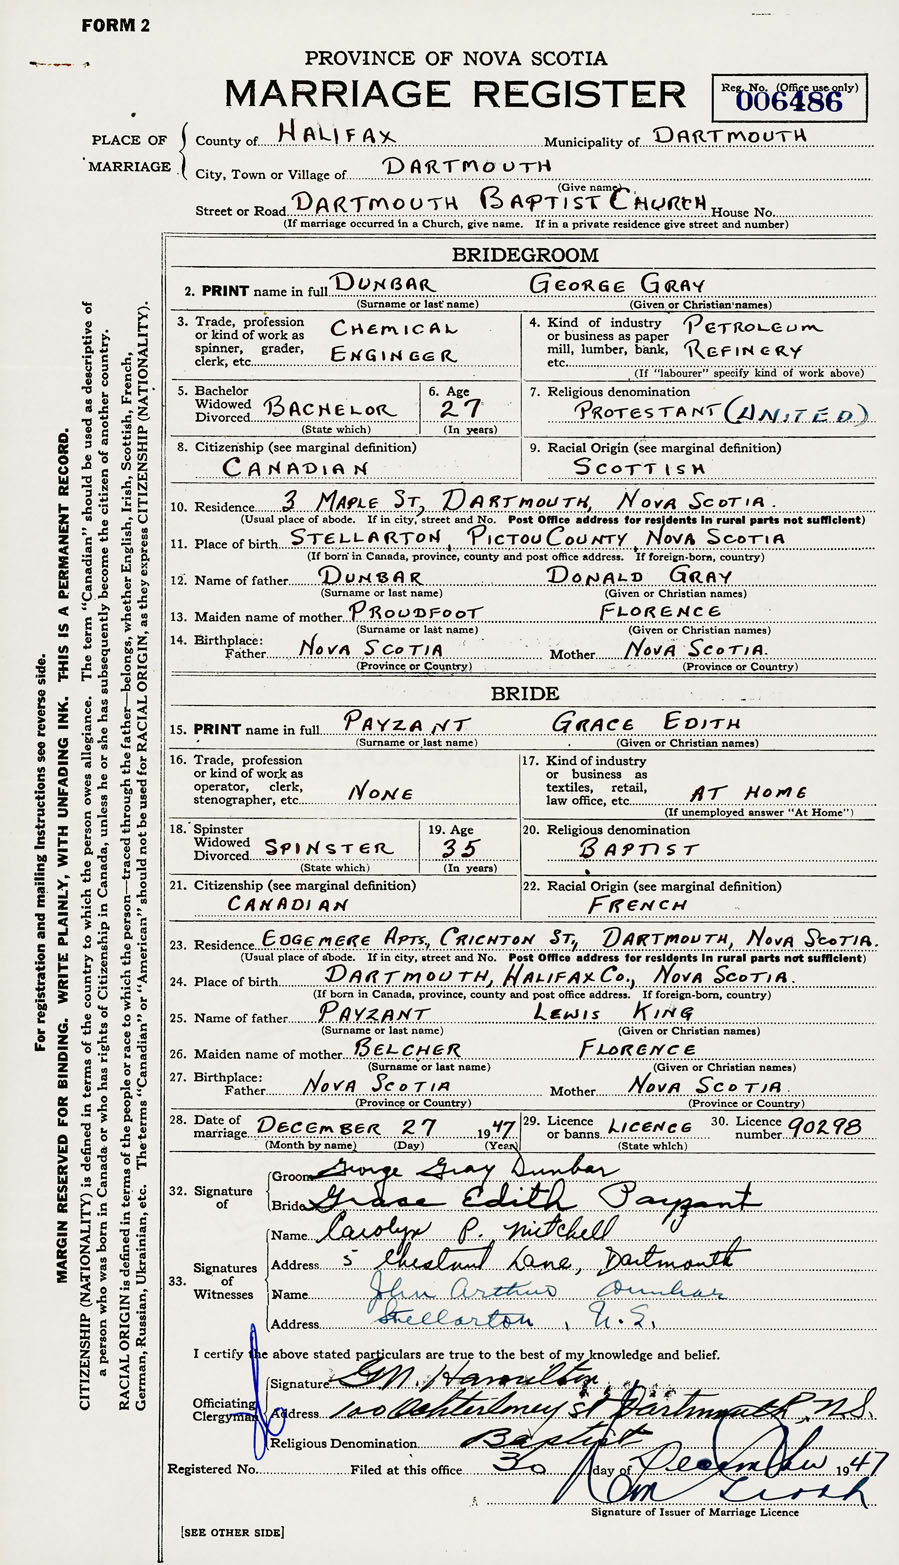 FORM 2
PROVINCE OF NOVA SCOTIA
MARRIAGE REGISTER
Reg. No. (Office use only)
006486
PLACE OF MARRIAGE
County of HALIFAX Municipality of DARTMOUTH
City, Town or Village of DARTMOUTH
(Give name)
Street or Road DARTMOUTH BAPTIST CHURCH House No.
(If marriage occurred in a Church, give name. If in a private residence give street and number)
BRIDEGROOM
2. PRINT name in full DUNBAR GEORGE GRAY
(Surname or last name) (Given or Christian names)
3. Trade, profession or kind of work as spinner, grader, clerk, etc. CHEMICAL ENGINEER
4. Kind of industry or business as paper mill, lumber, bank, etc. PETROLEUM REFINERY
(If "labourer" specify kind of work above)
5. Bachelor Widowed Divorced BACHELOR
(State which)
6. Age 27
(In years)
7. Religious denomination
PROTESTANT (UNITED)
8. Citizenship (see marginal definition)
CANADIAN
9. Racial Origin (see marginal definition)
SCOTTISH
10. Residence 3 MAPLE ST, DARTMOUTH, NOVA SCOTIA.
(Usual place of abode. If in city, street and No. Post Office address for residents in rural parts not sufficient)
11. Place of birth STELLARTON, PICTOU COUNTY, NOVA SCOTIA
(If born in Canada, province, county and post office address. If foreign-born, country)
12. Name of father DUNBAR DONALD GRAY
(Surname or last name) (Given or Christian names)
13. Maiden name of mother PROUDFOOT FLORENCE
(Surname or last name) (Given or Christian names)
14. Birthplace:
Father NOVA SCOTIA Mother NOVA SCOTIA.
(Province or Country) (Province or Country)
BRIDE
15. PRINT name in full PAYZANT GRACE EDITH
(Surname or last name) (Given or Christian names)
16. Trade, profession or kind of work as operator, clerk, stenographer, etc. NONE
17. Kind of industry or business as textiles, retail, law office, etc. AT HOME
(If unemployed answer "At Home")
18. Spinster Widowed Divorced SPINSTER
(State which)
19. Age 35
(In years)
20. Religious denomination
BAPTIST
21. Citizenship (see marginal definition)
CANADIAN
22. Racial Origin (see marginal definition)
FRENCH
23. Residence EDGEMERE APTS, CRICHTON ST, DARTMOUTH, NOVA SCOTIA.
(Usual place of abode. If in city, street and No. Post Office address for residents in rural parts not sufficient)
24. Place of birth DARTMOUTH, HALIFAX CO., NOVA SCOTIA.
(If born in Canada, province, county and post office address. If foreign-born, country)
25. Name of father PAYZANT LEWIS KING
(Surname or last name) (Given or Christian names)
26. Maiden name of mother BELCHER FLORENCE
(Surname or last name) (Given or Christian names)
27. Birthplace:
Father NOVA SCOTIA Mother NOVA SCOTIA.
(Province or Country) (Province or Country)
28. Date of marriage DECEMBER 27 1947
(Month by name) (Day) (Year)
29. Licence or banns LICENCE
(State which)
30. Licence number 90298
32. Signature of
Groom George Gray Dunbar
Bride Grace Edith Payzant
33. Signatures of Witnesses
Name Carolyn P. Mitchell
Address 5 Chestnut Lane, Dartmouth
Name John Arthur Dunbar
Address Stellarton, N.S.
I certify the above stated particulars are true to the best of my knowledge and belief.
Officiating Clergyman
Signature G.N. Hamilton
Address 100 Ochterloney St Dartmouth N.S.
Religious Denomination Baptist
Registered No. Filed at this office 30 day of December 1947
Signature of Issuer of Marriage Licence
[SEE OTHER SIDE]
For registration and mailing Instructions see reverse side.
MARGIN RESERVED FOR BINDING. WRITE PLAINLY, WITH UNFADING INK. THIS IS A PERMANENT RECORD.
CITIZENSHIP (NATIONALITY) is defined in terms of the country to which the person owes allegiance. The term "Canadian" should be used as descriptive of
a person who was born in Canada or who has rights of Citizenship in Canada, unless he or she has subsequently become the citizen of another country.
RACIAL ORIGIN is defined in terms of the people or race to which the person—traced through the father—belongs, whether English, Irish, Scottish, French,
German, Russian, Ukrainian, etc. The terms "Canadian" or "American" should not be used for RACIAL ORIGIN, as they express CITIZENSHIP (NATIONALITY).